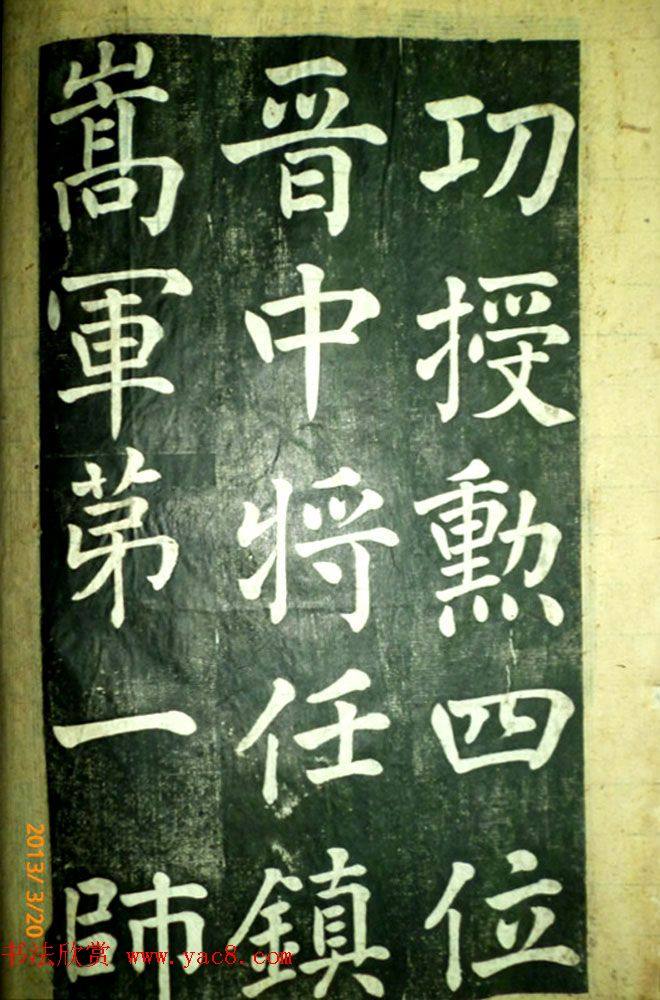 功授勲四位
晋中将任鎮
嵩軍苐一師
2013/3/20
书法欣赏 www.yac8.com